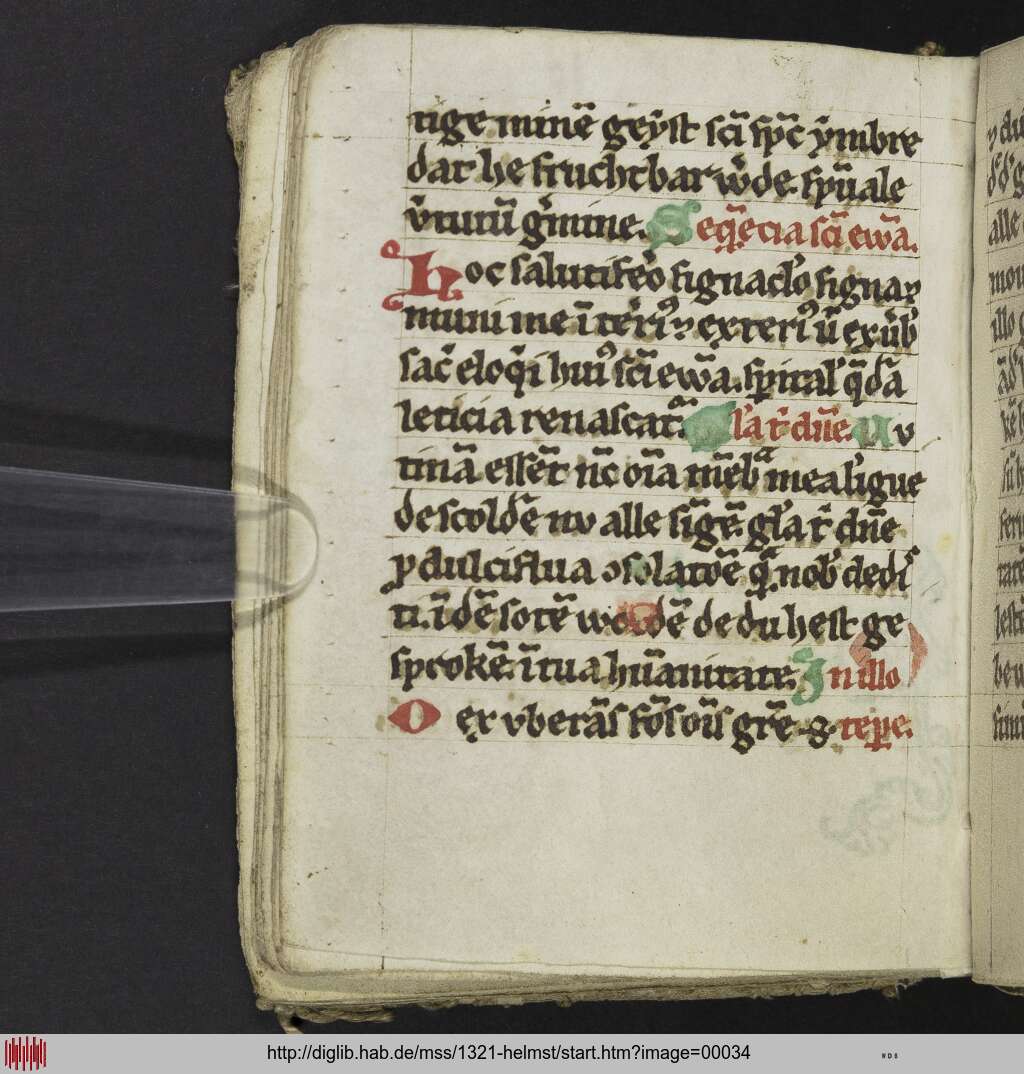 tige minē geẏst sc̄i spc̄ ẏmbre
dat he fruchtbar w̓de. spūale
v̓tutū g̓mine. Seq̄ecia sc̄i ewā.
Hoc salutifeo signaclo signa
muni me īteri⁹ exteri⁹ ū ex
sac̄ eloqi hui⁹ sc̄i ewā. spital q̄dā
leticia renascat. Gla t̄ dn̄e. Nv
tinā essēt nc̄ oīa mēb mea ligue
de scoldē nv alle sīgē gla t̄ dn̄e
p dulciflua ɔsolatōē q̄ nob dedi
ti. ī dē sotē wordē de du hest ge
sprokē. ī tua hūanitate. In illo
O ex vberās fōs oīs grē. g tēpe.
http://diglib.hab.de/mss/1321-helmst/start.htm?image=00034